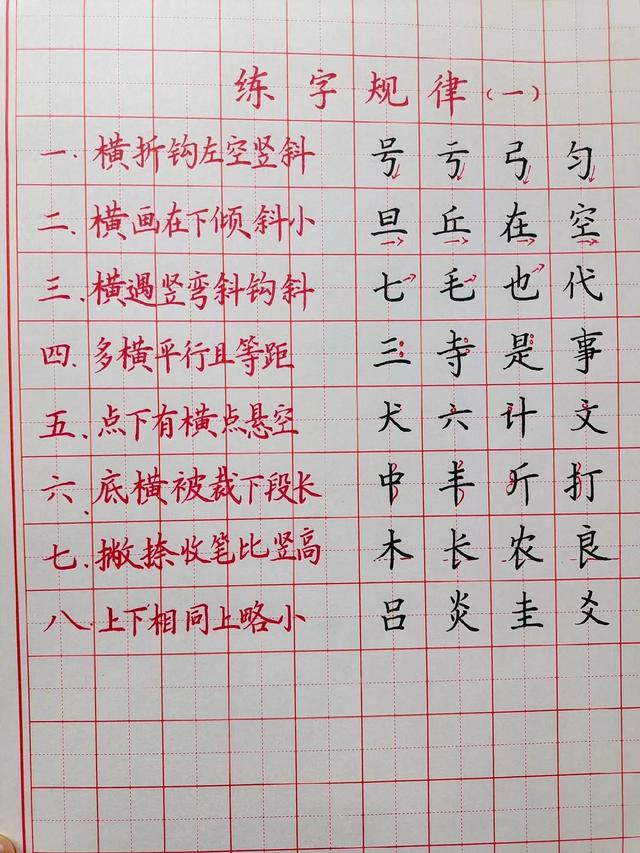 练字规律(一)
一.横折钩左空竖斜 号亏弓匀
二.横画在下倾斜小 旦丘在空
三.横遇竖弯斜钩斜 七毛也代
四.多横平行且等距 三寺是事
五.点下有横点悬空 犬六计文
六.底横被裁下段长 中丰斤打
七.撇捺收笔比竖高 木长农良
八.上下相同上略小 吕炎圭爻